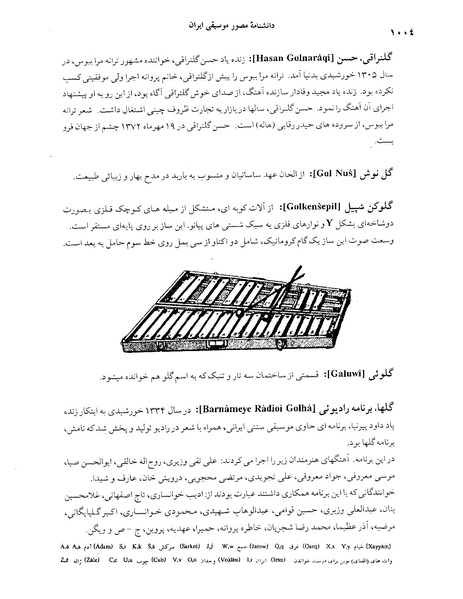 دانشنامهٔ مصور موسیقی ایران
۱۰۰٤
گلنراقی، حسن [Hasan Golnarâqi]: زنده یاد حسن گلنراقی، خواننده مشهور ترانه مرا ببوس، در
سال ۱۳۰۵ خورشیدی بدنیا آمد. ترانه مرا ببوس را پیش از گلنراقی، خانم پروانه اجرا ولی موفقیتی کسب
نکرده بود. زنده یاد مجید وفادار سازنده آهنگ، از صدای خوش گلنراقی آگاه بود، از این رو به او پیشنهاد
اجرای آن آهنگ را نمود. حسن گلنراقی، سالها در بازار به تجارت ظروف چینی اشتغال داشت. شعر ترانه
مرا ببوس، از سروده های حیدر رقابی (هاله) است. حسن گلنراقی در ۱۹ مهرماه ۱۳۷۲ چشم از جهان فرو
بست.
گل نوش [Gol Nuš]: از الحان عهد ساسانیان و منسوب به باربد در مدح بهار و زیبائی طبیعت.
گلوکن شپیل [Golkenšepil]: از آلات کوبه ای، متشکل از میله های کوچک فلزی بصورت
دوشاخه‌ای بشکل Y و نوارهای فلزی به سبک شستی های پیانو. این ساز بر روی پایه‌ای مستقر است.
وسعت صوت این ساز یک گام کروماتیک، شامل دو اکتاو از سی بمل روی خط سوم حامل به بعد است.
گلوئی [Galuwi]: قسمتی از ساختمان سه تار و تنبک که به اسم گلو هم خوانده میشود.
گلها، برنامه رادیوئی [Barnâmeye Râdioi Golhâ]: در سال ۱۳۳۴ خورشیدی به ابتکار زنده
یاد داود پیرنیا، برنامه ای حاوی موسیقی سنتی ایرانی، همراه با شعر در رادیو تولید و پخش شد که نامش،
برنامه گلها بود.
در این برنامه. آهنگهای هنرمندان زیر را اجرا می کردند: علی نقی وزیری، روح‌اله خالقی، ابوالحسن صبا،
موسی معروفی، جواد معروفی، علی تجویدی، مرتضی محجوبی، درویش خان، عارف و شیدا.
خوانندگانی که با این برنامه همکاری داشتند عبارت بودند از: ادیب خوانساری، تاج اصفهانی، غلامحسین
بنان، عبدالعلی وزیری، حسین قوامی، عبدالوهاب شهیدی، محمودی خوانساری، اکبر گلپایگانی،
مرضیه، آذر عظیما، محمد رضا شجریان، خاطره پروانه، حمیرا، عهدیه، پروین، ج - ص و ویگن.